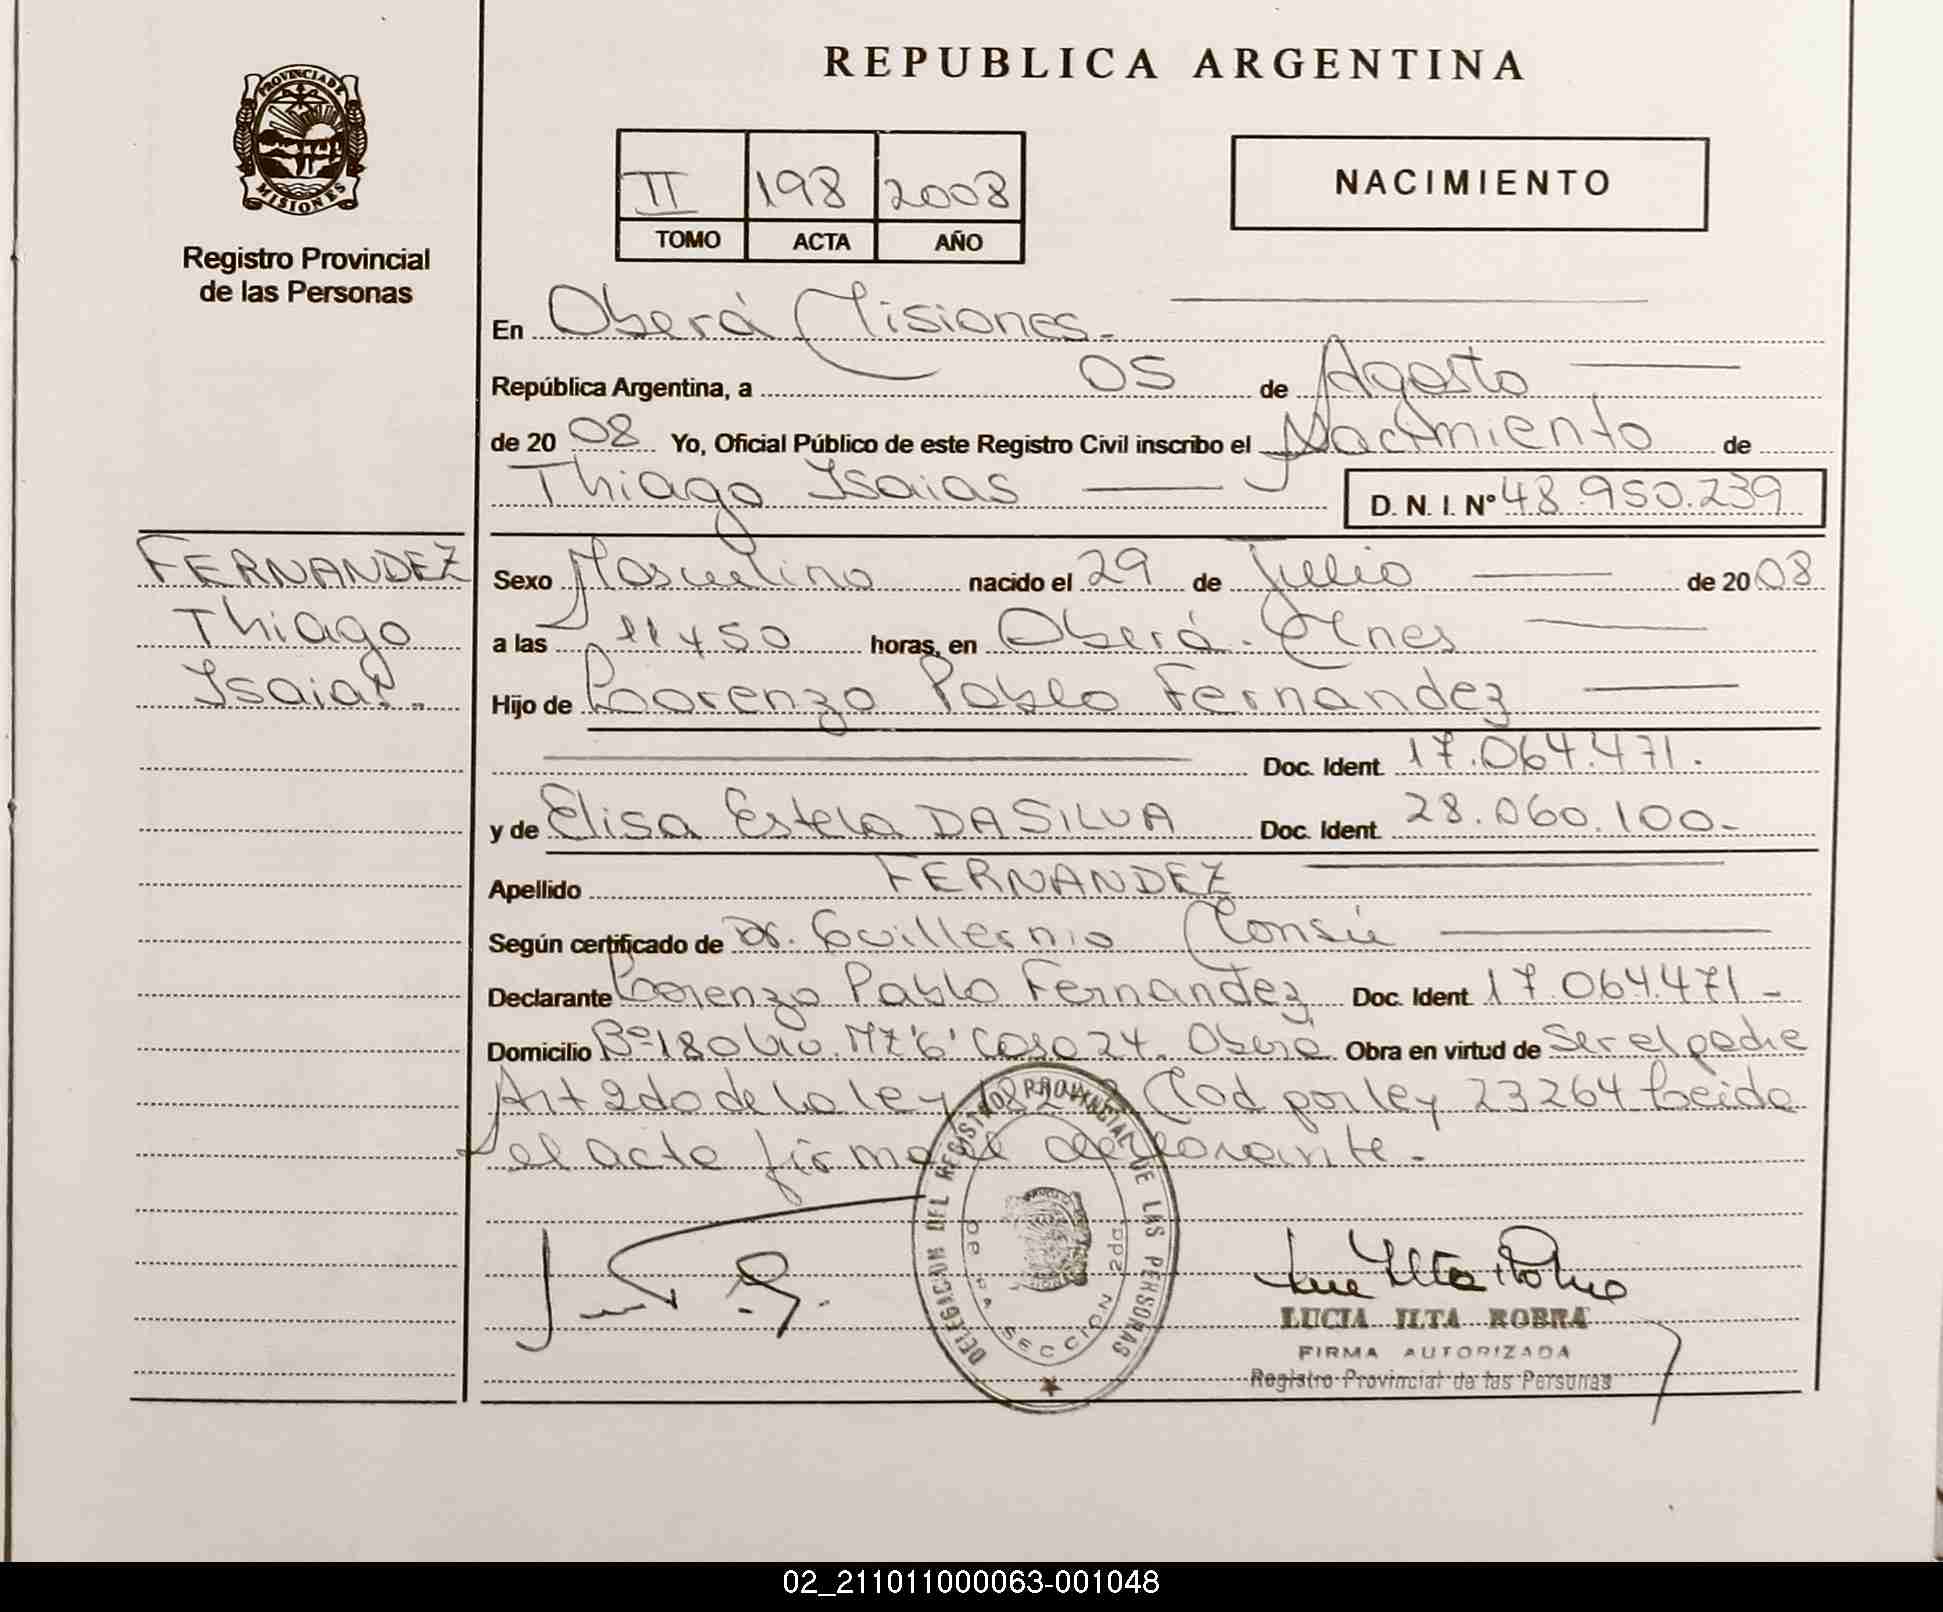 REPUBLICA ARGENTINA
PROVINCIA DE
MISIONES
Registro Provincial
de las Personas
II 198 2008
TOMO ACTA AÑO
NACIMIENTO
En Oberá Misiones.
República Argentina, a 05 de Agosto
de 2008 Yo, Oficial Público de este Registro Civil inscribo el Nacimiento de
Thiago Isaias D. N. I. Nº 48.950.239
FERNANDEZ
Thiago
Isaias.
Sexo Masculino nacido el 29 de Julio de 2008
a las 11 y 50 horas, en Oberá. Mnes
Hijo de Lorenzo Pablo Fernandez
Doc. Ident. 17.064.471.
y de Elisa Estela DA SILVA Doc. Ident. 28.060.100-
Apellido FERNANDEZ
Según certificado de Dr. Guillermo
Declarante Lorenzo Pablo Fernandez Doc. Ident. 17.064.471-
Domicilio Bº 180 Viv. Mz "6" Casa 24. Oberá Obra en virtud de Ser el padre
Art 2do de la ley Mod por ley 23264 Leida
el acta firma el declarante.
DELEGACION DEL REGISTRO PROVINCIAL DE LAS PERSONAS
SECCION 2da
LUCIA ILTA ROBRA
FIRMA AUTORIZADA
Registro Provincial de las Personas
02_211011000063-001048